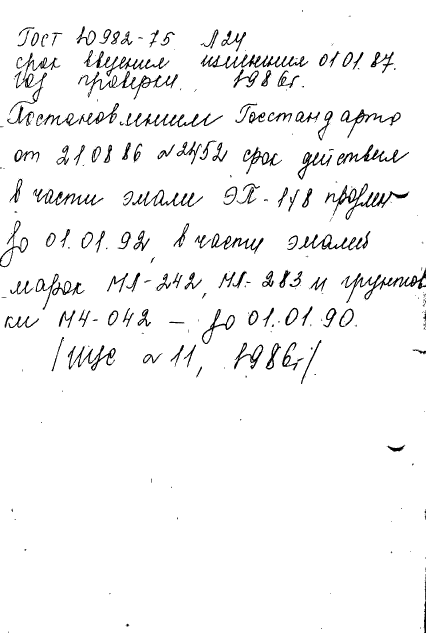 Гост 10982-75 №24
срок введения изменения 01.01.87.
год проверки 1986г.
Постановлением Госстандарта
от 21.08.86 №2452 срок действия
в части эмали ЭП-148 продлен
до 01.01.92, в части эмалей
марок МЛ-242, МЛ-283 и грунтов
ки МЧ-042 — до 01.01.90.
/ИУС №11, 1986г/